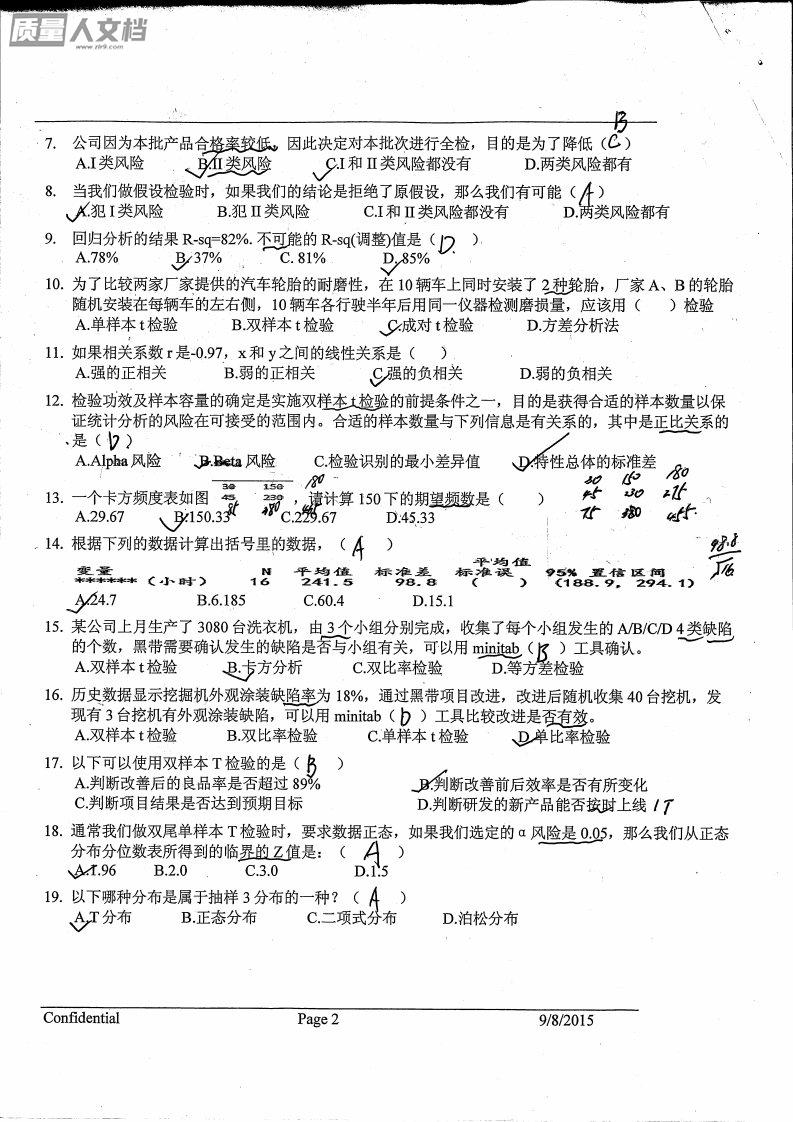 质量人文档
www.zlr9.com
B
7. 公司因为本批产品合格率较低，因此决定对本批次进行全检，目的是为了降低（C）
A.I类风险 B.II类风险 C.I和II类风险都没有 D.两类风险都有
8. 当我们做假设检验时，如果我们的结论是拒绝了原假设，那么我们有可能（A）
A.犯I类风险 B.犯II类风险 C.I和II类风险都没有 D.两类风险都有
9. 回归分析的结果 R-sq=82%. 不可能的 R-sq(调整)值是（D ）
A.78% B.37% C. 81% D.85%
10. 为了比较两家厂家提供的汽车轮胎的耐磨性，在 10 辆车上同时安装了 2 种轮胎，厂家 A、B 的轮胎
随机安装在每辆车的左右侧，10 辆车各行驶半年后用同一仪器检测磨损量，应该用（ ）检验
A.单样本 t 检验 B.双样本 t 检验 C.成对 t 检验 D.方差分析法
11. 如果相关系数 r 是-0.97，x 和 y 之间的线性关系是（ ）
A.强的正相关 B.弱的正相关 C.强的负相关 D.弱的负相关
12. 检验功效及样本容量的确定是实施双样本 t 检验的前提条件之一，目的是获得合适的样本数量以保
证统计分析的风险在可接受的范围内。合适的样本数量与下列信息是有关系的，其中是正比关系的
是（D）
A.Alpha 风险 B.Beta 风险 C.检验识别的最小差异值 D.特性总体的标准差
30 150 180
30 150 180
13. 一个卡方频度表如图 45 230 ，请计算 150 下的期望频数是（ ）
45 230 275
A.29.67 B.150.33 C.229.67 D.45.33
75 380 455
75 380 455
14. 根据下列的数据计算出括号里的数据，（A ）
98.8
√16
变量 N 平均值 标准差 平均值标准误 95% 置信区间
****** (小时) 16 241.5 98.8 ( ) (188.9, 294.1)
A.24.7 B.6.185 C.60.4 D.15.1
15. 某公司上月生产了 3080 台洗衣机，由 3 个小组分别完成，收集了每个小组发生的 A/B/C/D 4 类缺陷
的个数，黑带需要确认发生的缺陷是否与小组有关，可以用 minitab（B ）工具确认。
A.双样本 t 检验 B.卡方分析 C.双比率检验 D.等方差检验
16. 历史数据显示挖掘机外观涂装缺陷率为 18%，通过黑带项目改进，改进后随机收集 40 台挖机，发
现有 3 台挖机有外观涂装缺陷，可以用 minitab（D ）工具比较改进是否有效。
A.双样本 t 检验 B.双比率检验 C.单样本 t 检验 D.单比率检验
17. 以下可以使用双样本 T 检验的是（B ）
A.判断改善后的良品率是否超过 89% B.判断改善前后效率是否有所变化
C.判断项目结果是否达到预期目标 D.判断研发的新产品能否按时上线 1T
18. 通常我们做双尾单样本 T 检验时，要求数据正态，如果我们选定的 α 风险是 0.05，那么我们从正态
分布分位数表所得到的临界的 Z 值是：（ A ）
A.1.96 B.2.0 C.3.0 D.1.5
19. 以下哪种分布是属于抽样 3 分布的一种？（ A ）
A.T 分布 B.正态分布 C.二项式分布 D.泊松分布
Confidential Page 2 9/8/2015